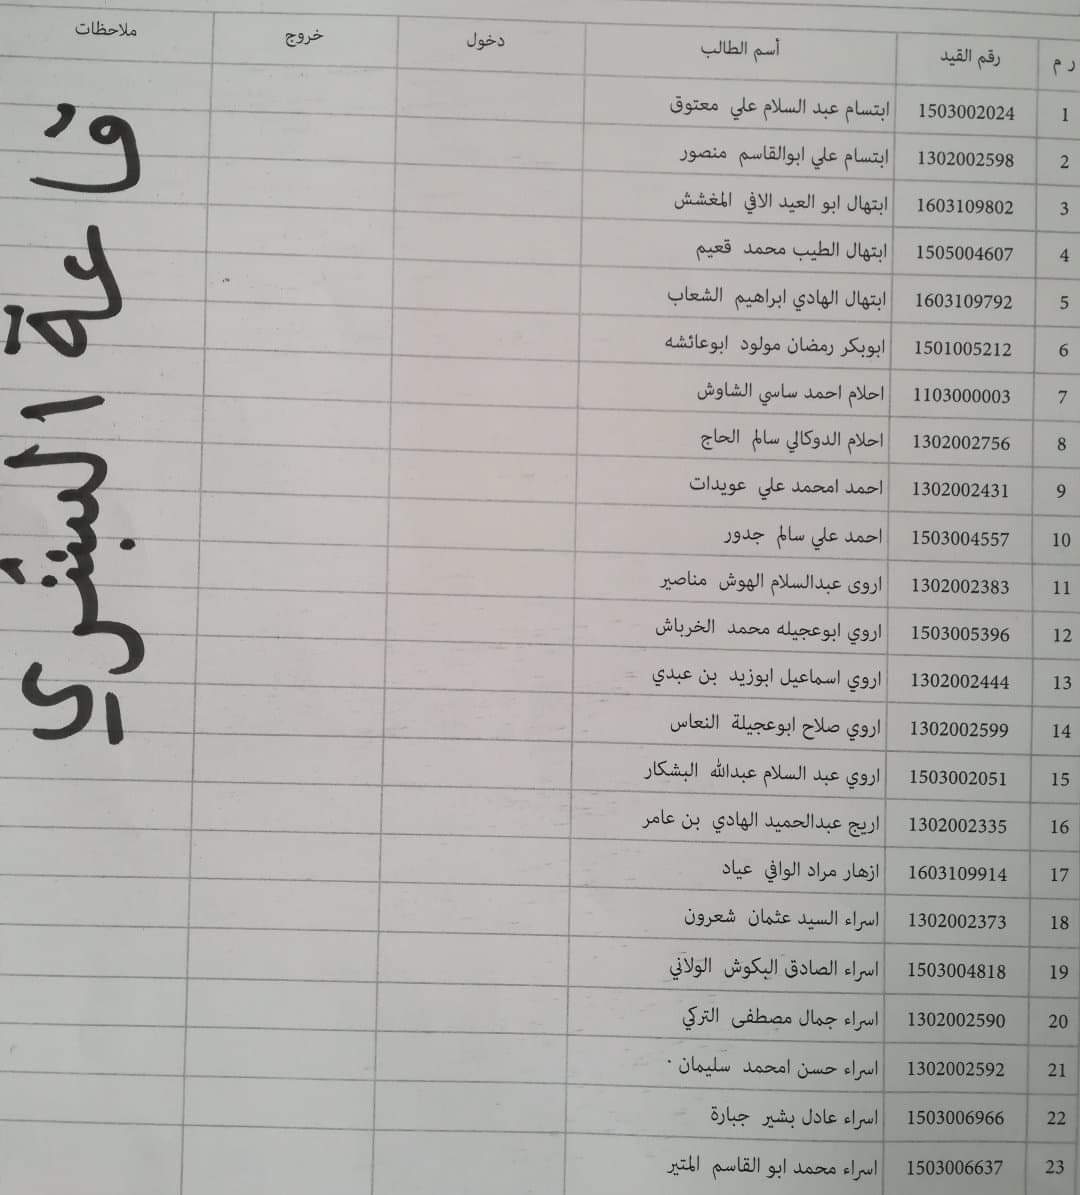 ر م رقم القيد أسم الطالب دخول خروج ملاحظات
1 1503002024 ابتسام عبد السلام علي معتوق
2 1302002598 ابتسام علي ابوالقاسم منصور
3 1603109802 ابتهال ابو العيد الافي المغشش
4 1505004607 ابتهال الطيب محمد قعيم
5 1603109792 ابتهال الهادي ابراهيم الشعاب
6 1501005212 ابوبكر رمضان مولود ابوعائشه
7 1103000003 احلام احمد ساسي الشاوش
8 1302002756 احلام الدوكالي سالم الحاج
9 1302002431 احمد امحمد علي عويدات
10 1503004557 احمد علي سالم جدور
11 1302002383 اروى عبدالسلام الهوش مناصير
12 1503005396 اروي ابوعجيله محمد الخرباش
13 1302002444 اروي اسماعيل ابوزيد بن عبدي
14 1302002599 اروي صلاح ابوعجيلة النعاس
15 1503002051 اروي عبد السلام عبدالله البشكار
16 1302002335 اريج عبدالحميد الهادي بن عامر
17 1603109914 ازهار مراد الوافي عياد
18 1302002373 اسراء السيد عثمان شعرون
19 1503004818 اسراء الصادق البكوش الولاني
20 1302002590 اسراء جمال مصطفى التركي
21 1302002592 اسراء حسن امحمد سليمان
22 1503006966 اسراء عادل بشير جبارة
23 1503006637 اسراء محمد ابو القاسم المتير
قاعة البشرى